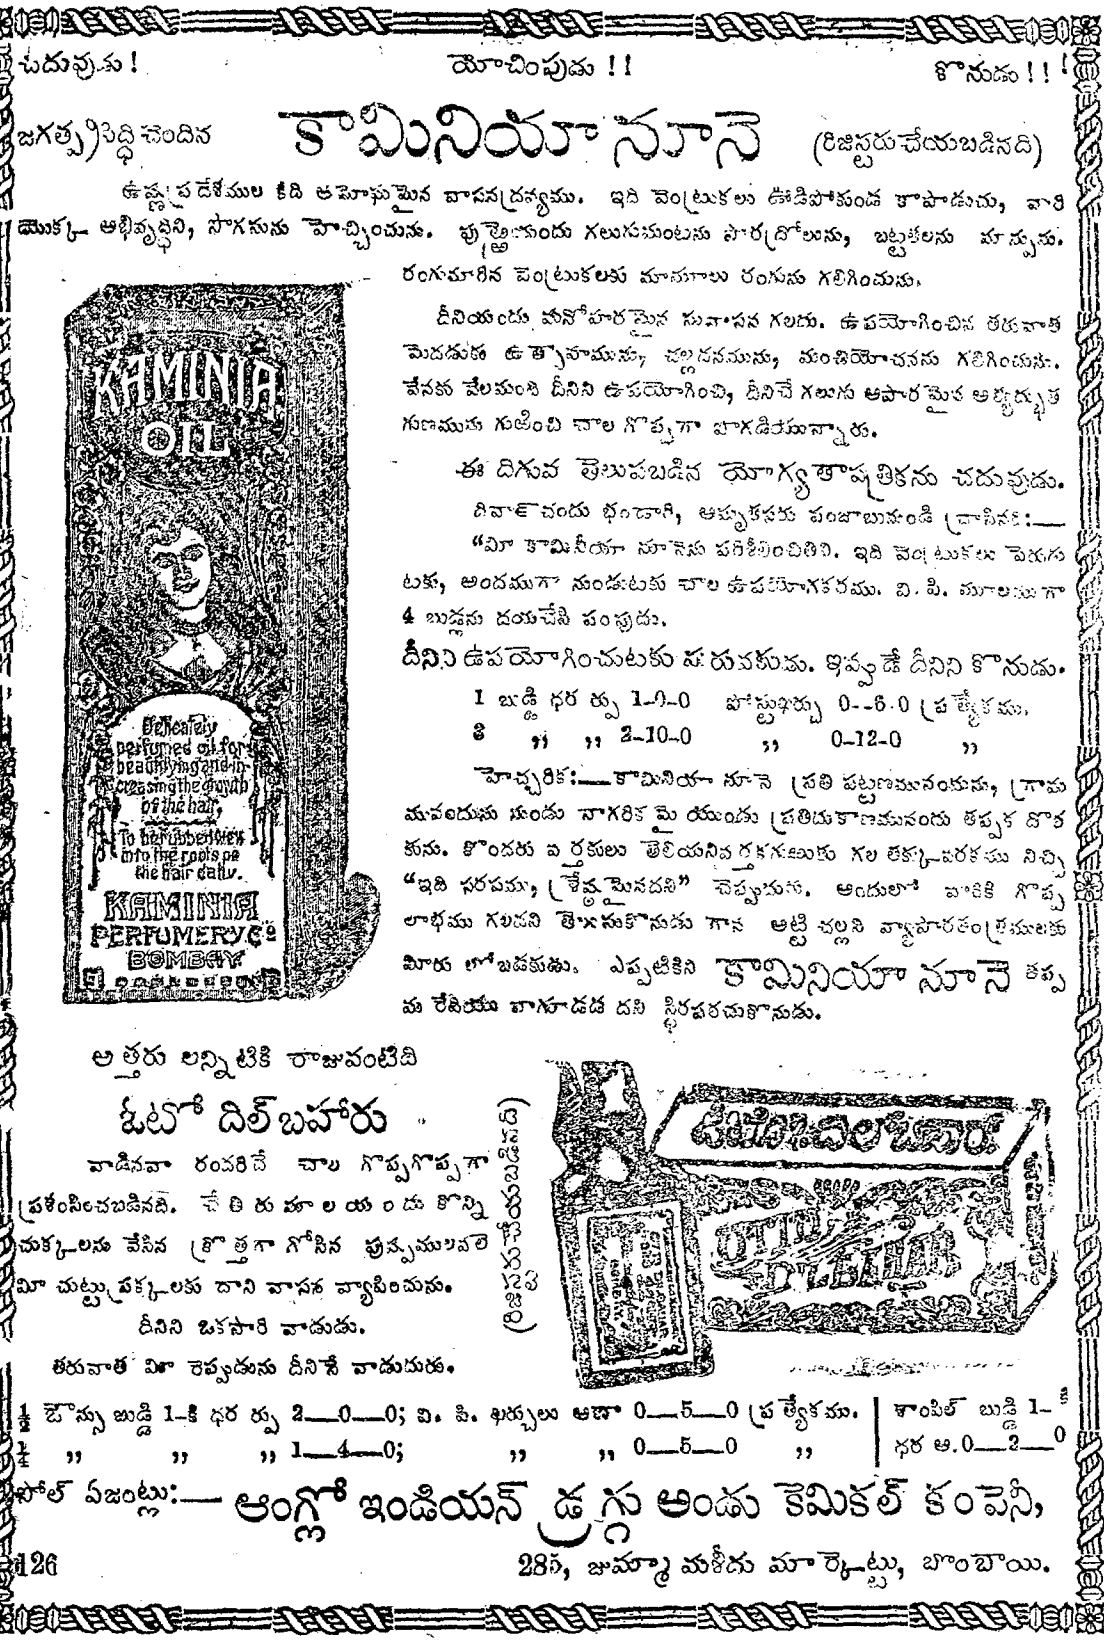 చదువుడు! యోచింపుడు!! కొనుడు!!!
జగత్ప్రసిద్ధి చెందిన కామినియా నూనె (రిజిస్టరు చేయబడినది)
ఉష్ణ ప్రదేశముల కిది అమోఘమైన వాసనద్రవ్యము. ఇది వెంట్రుకలు ఊడిపోకుండ కాపాడుచు, వాటి
యొక్క అభివృద్ధిని, సొగసును హెచ్చించును. కలుగుమంటను పోగొట్టును, బట్టతలను మాన్పును.
రంగుమారిన వెంట్రుకలకు మామూలు రంగును గలిగించును.
దీనియందు మనోహరమైన సువాసన గలదు. ఉపయోగించిన తరువాత
మెదడుకు ఉత్సాహమును, చల్లదనమును, మంచియోచనను గలిగించును.
వేనకు వేలమంది దీనిని ఉపయోగించి, దీనిచే గలుగు అపారమైన అత్యద్భుత
గుణమును గుఱించి చాల గొప్పగా పొగడియున్నారు.
ఈ దిగువ తెలుపబడిన యోగ్యతాపత్రికను చదువుడు.
దివాన్‌చందు భండారి, పంజాబునుండి వ్రాసినది:—
“మీ కామినీయా నూనెను పరిశీలించితిని. ఇది వెంట్రుకలు పెరుగు
టకు, అందముగా నుండుటకు చాల ఉపయోగకరము. వి. పి. మూలముగా
4 బుడ్లను దయచేసి పంపుడు.
దీనిని ఉపయోగించుటకు మరువకుడు. ఇప్పుడే దీనిని కొనుడు.
1 బుడ్డి ధర ర్పు 1-0-0 పోస్టుఖర్చు 0--6-0 ప్రత్యేకము.
3 ,, ,, 2-10-0 ,, 0-12-0 ,,
హెచ్చరిక:—కామినియా నూనె ప్రతి పట్టణమునందును, గ్రామ
మునందును నుండు నాగరికమై యుండు ప్రతిదుకాణమునందు తప్పక దొర
కును. కొందరు వర్తకులు
“ఇది సరసము, శ్రేష్ఠమైనదని” చెప్పుదురు. అందులో వారికి గొప్ప
లాభము గలదని తెలుసుకొనుడు గాన అట్టి చల్లని వ్యాపారతంత్రములకు
మీరు లోబడకుడు. ఎప్పటికిని కామినియా నూనె తప్ప
మ రేదియు వాగూడడ దని స్థిరపరచుకొనుడు.
KAMINIA
OIL
Delicately
perfumed oil for
beautifying and in-
creasing the growth
of the hair.
To be rubbed well
into the roots of
the hair daily.
KAMINIA
PERFUMERY Co
BOMBAY
అత్తరు లన్నిటికి రాజువంటిది
ఓటో దిల్‌బహారు
(రిజిస్టరు చేయబడినది)
వాడినవా రందరిచే చాల గొప్పగొప్పగా
ప్రశంసించబడినది. చేతిరుమాలయందు కొన్ని
చుక్కలను వేసిన క్రొత్తగా గోసిన పుష్పములవలె
మీ చుట్టుపక్కలకు దాని వాసన వ్యాపించును.
దీనిని ఒకసారి వాడుడు.
తరువాత మీ రెప్పుడును దీనినే వాడుదురు.
OTTO
DILBAHAR
½ ఔన్సు బుడ్డి 1-కి ధర ర్పు 2—0—0; వి. పి. ఖర్చులు అణా 0—5—0 ప్రత్యేకము.
¼ ,, ,, ,, 1—4—0; ,, ,, 0—5—0 ,,
శాంపిల్ బుడ్డి 1-కి
ధర అ. 0—2—0
సోల్ ఏజంట్లు:— ఆంగ్లో ఇండియన్ డ్రగ్గు అండు కెమికల్ కంపెనీ,
126 285, జుమ్మా మశీదు మార్కెట్టు, బొంబాయి.